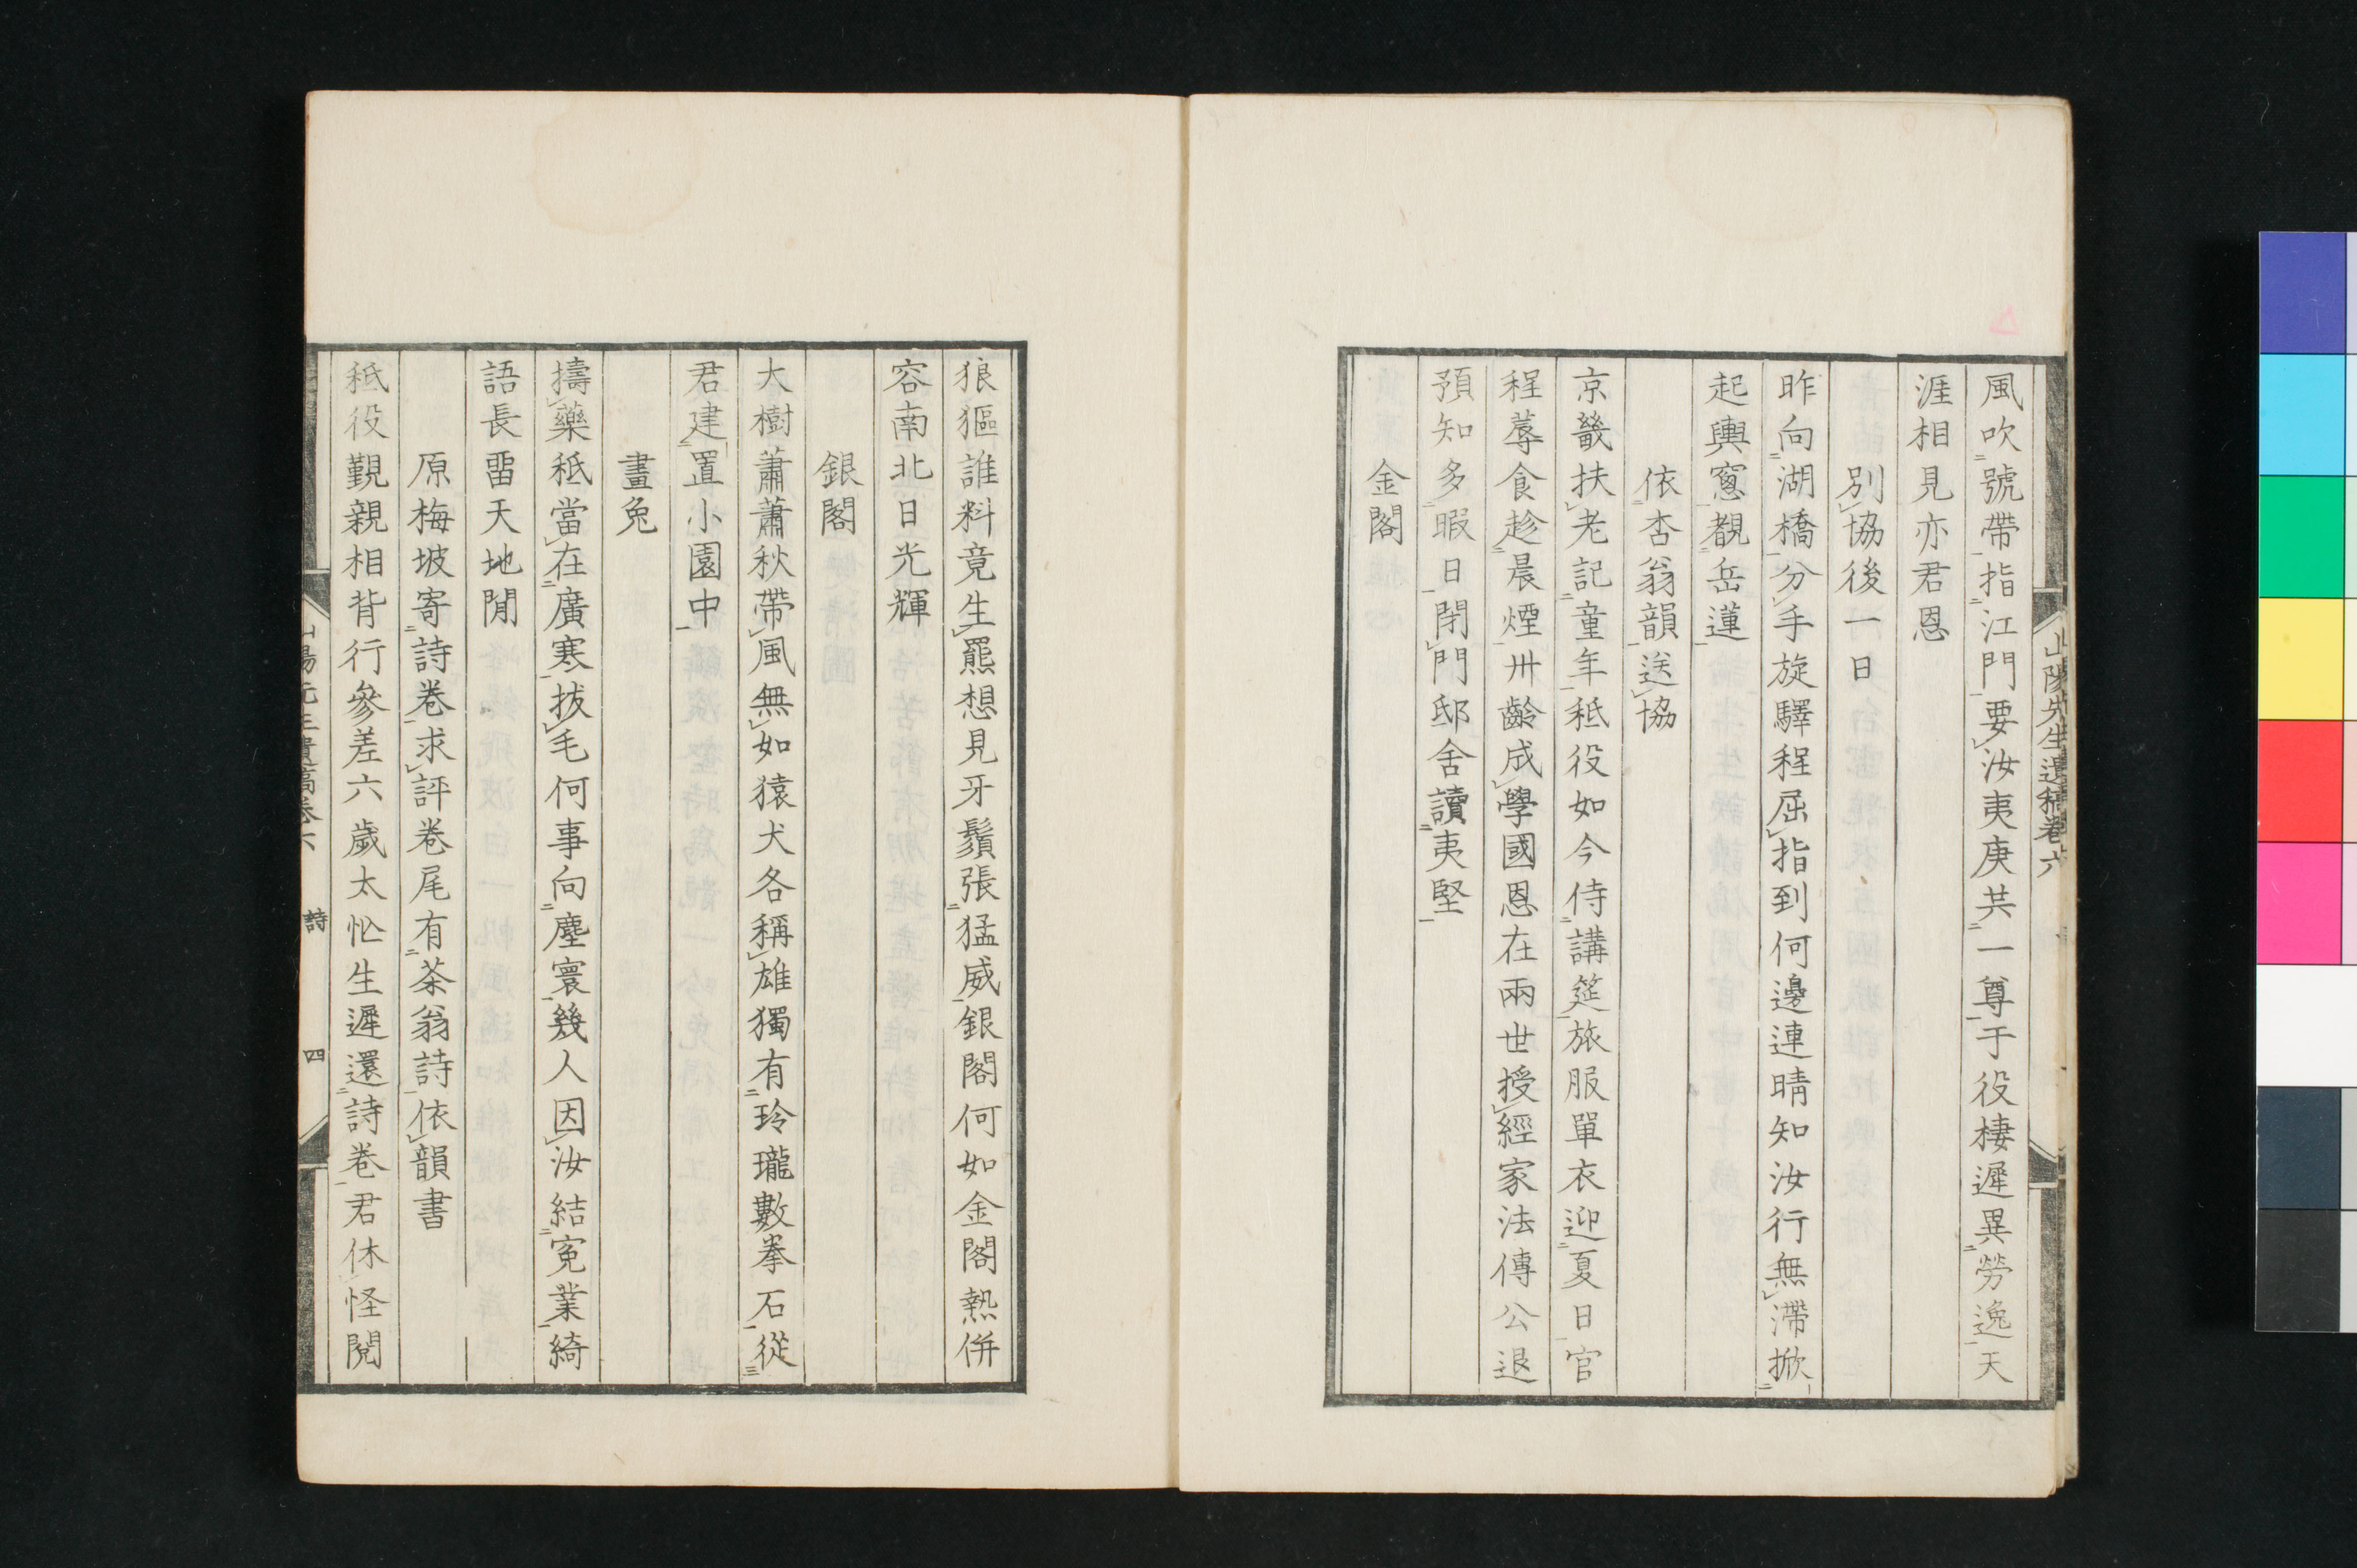 山陽先生遺稿卷六
風吹號帶指江門要汝夷庚共一尊于役棲遲異勞逸天
涯相見亦君恩
別協後一日
昨向湖橋分手旋驛程屈指到何邊連晴知汝行無滯掀
起輿窓覩岳蓮
依杏翁韻送協
京畿扶老記童年秪役如今侍講筵旅服單衣迎夏日官
程蓐食趁晨煙丱齡成學國恩在兩世授經家法傳公退
預知多暇日閉門邸舍讀夷堅
金閣
狼貙誰料竟生羆想見牙鬚張猛威銀閣何如金閣熱併
容南北日光輝
銀閣
大樹蕭蕭秋帶風無如猿犬各稱雄獨有玲瓏數拳石從
君建置小園中
畫兔
擣藥秪當在廣寒拔毛何事向塵寰幾人因汝結寃業綺
語長畱天地間
原梅坡寄詩卷求評卷尾有茶翁詩依韻書
秪役覲親相背行參差六歲太忙生遲還詩卷君休怪閱
山陽先生遺稿卷六
詩
四